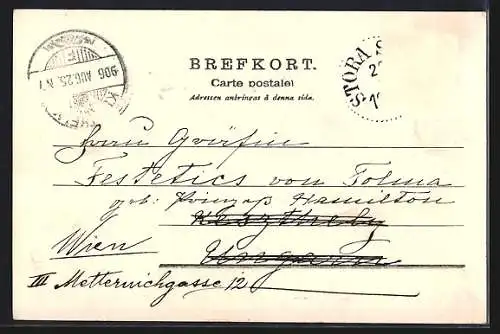 BREFKORT.
Carte postale
Adressen anbringas å denna sida.
STORA S
906 AUG. 25
Frau Gräfin
Festetics von Tolma
geb: Prinzess Hamilton
Keszthely
Wien Ungarn
III Metternichgasse 12